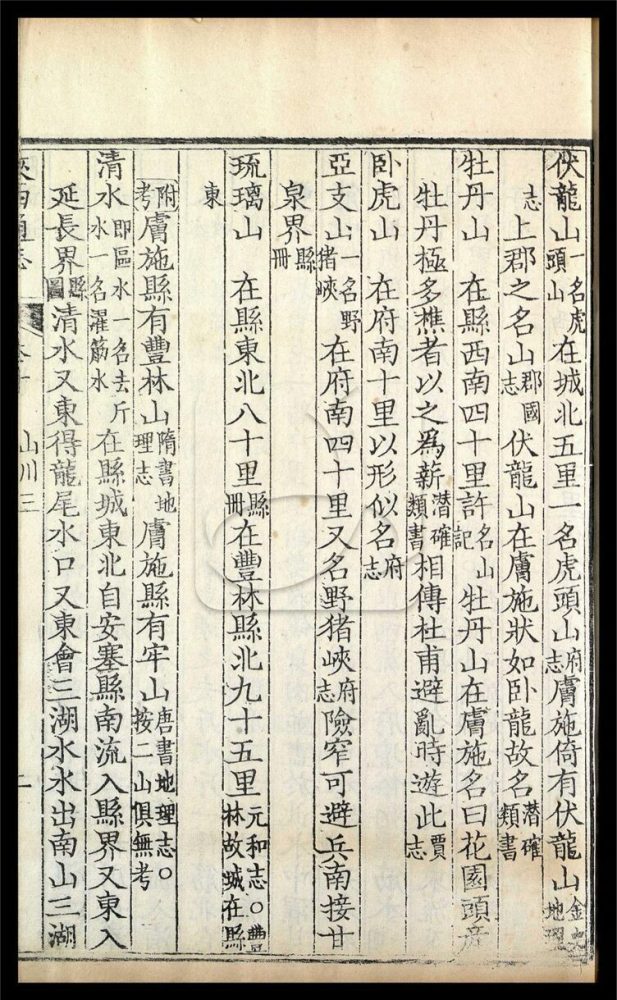 伏龍山一名虎頭山在城北五里一名虎頭山府志膚施倚有伏龍山金史地理
志上郡之名山郡國志伏龍山在膚施狀如卧龍故名潛確類書
牡丹山在縣西南四十里許名山記牡丹山在膚施名曰花園頭產
牡丹極多樵者以之爲薪潛確類書相傳杜甫避亂時遊此賈志
卧虎山在府南十里以形似名府志
亞支山一名野猪峽在府南四十里又名野猪峽府志險窄可避兵南接甘
泉界縣冊
琉璃山在縣東北八十里縣冊在豐林縣北九十五里元和志○豐林故城在縣
東
附考膚施縣有豐林山隋書地理志膚施縣有牢山唐書地理志○按二山俱無考
清水即區水一名去斤水一名濯筋水在縣城東北自安塞縣南流入縣界又東入
延長界縣圖清水又東得龍尾水口又東會三湖水水出南山三湖
山川三